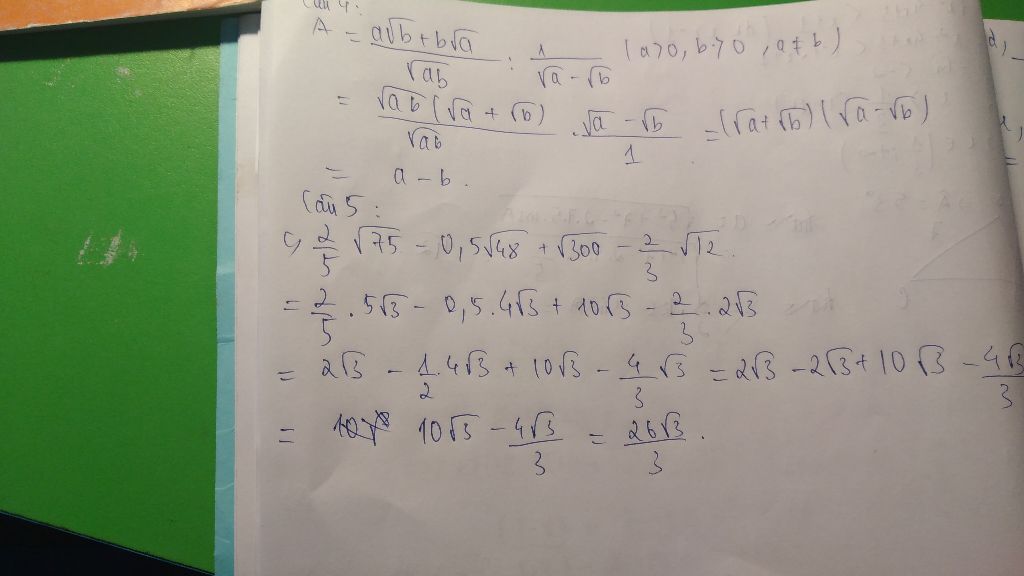 Câu 4:
A = (a√b + b√a)/√ab : 1/(√a - √b) (a>0, b>0, a≠b)
= √ab(√a + √b)/√ab . (√a - √b)/1 = (√a+√b)(√a-√b)
= a - b.
Câu 5:
c, 2/5 √75 - 0,5√48 + √300 - 2/3 √12.
= 2/5 . 5√3 - 0,5.4√3 + 10√3 - 2/3 . 2√3
= 2√3 - 1/2 .4√3 + 10√3 - 4/3 √3 = 2√3 - 2√3 + 10√3 - 4√3/3
= 10√3 - 4√3/3 = 26√3/3 .